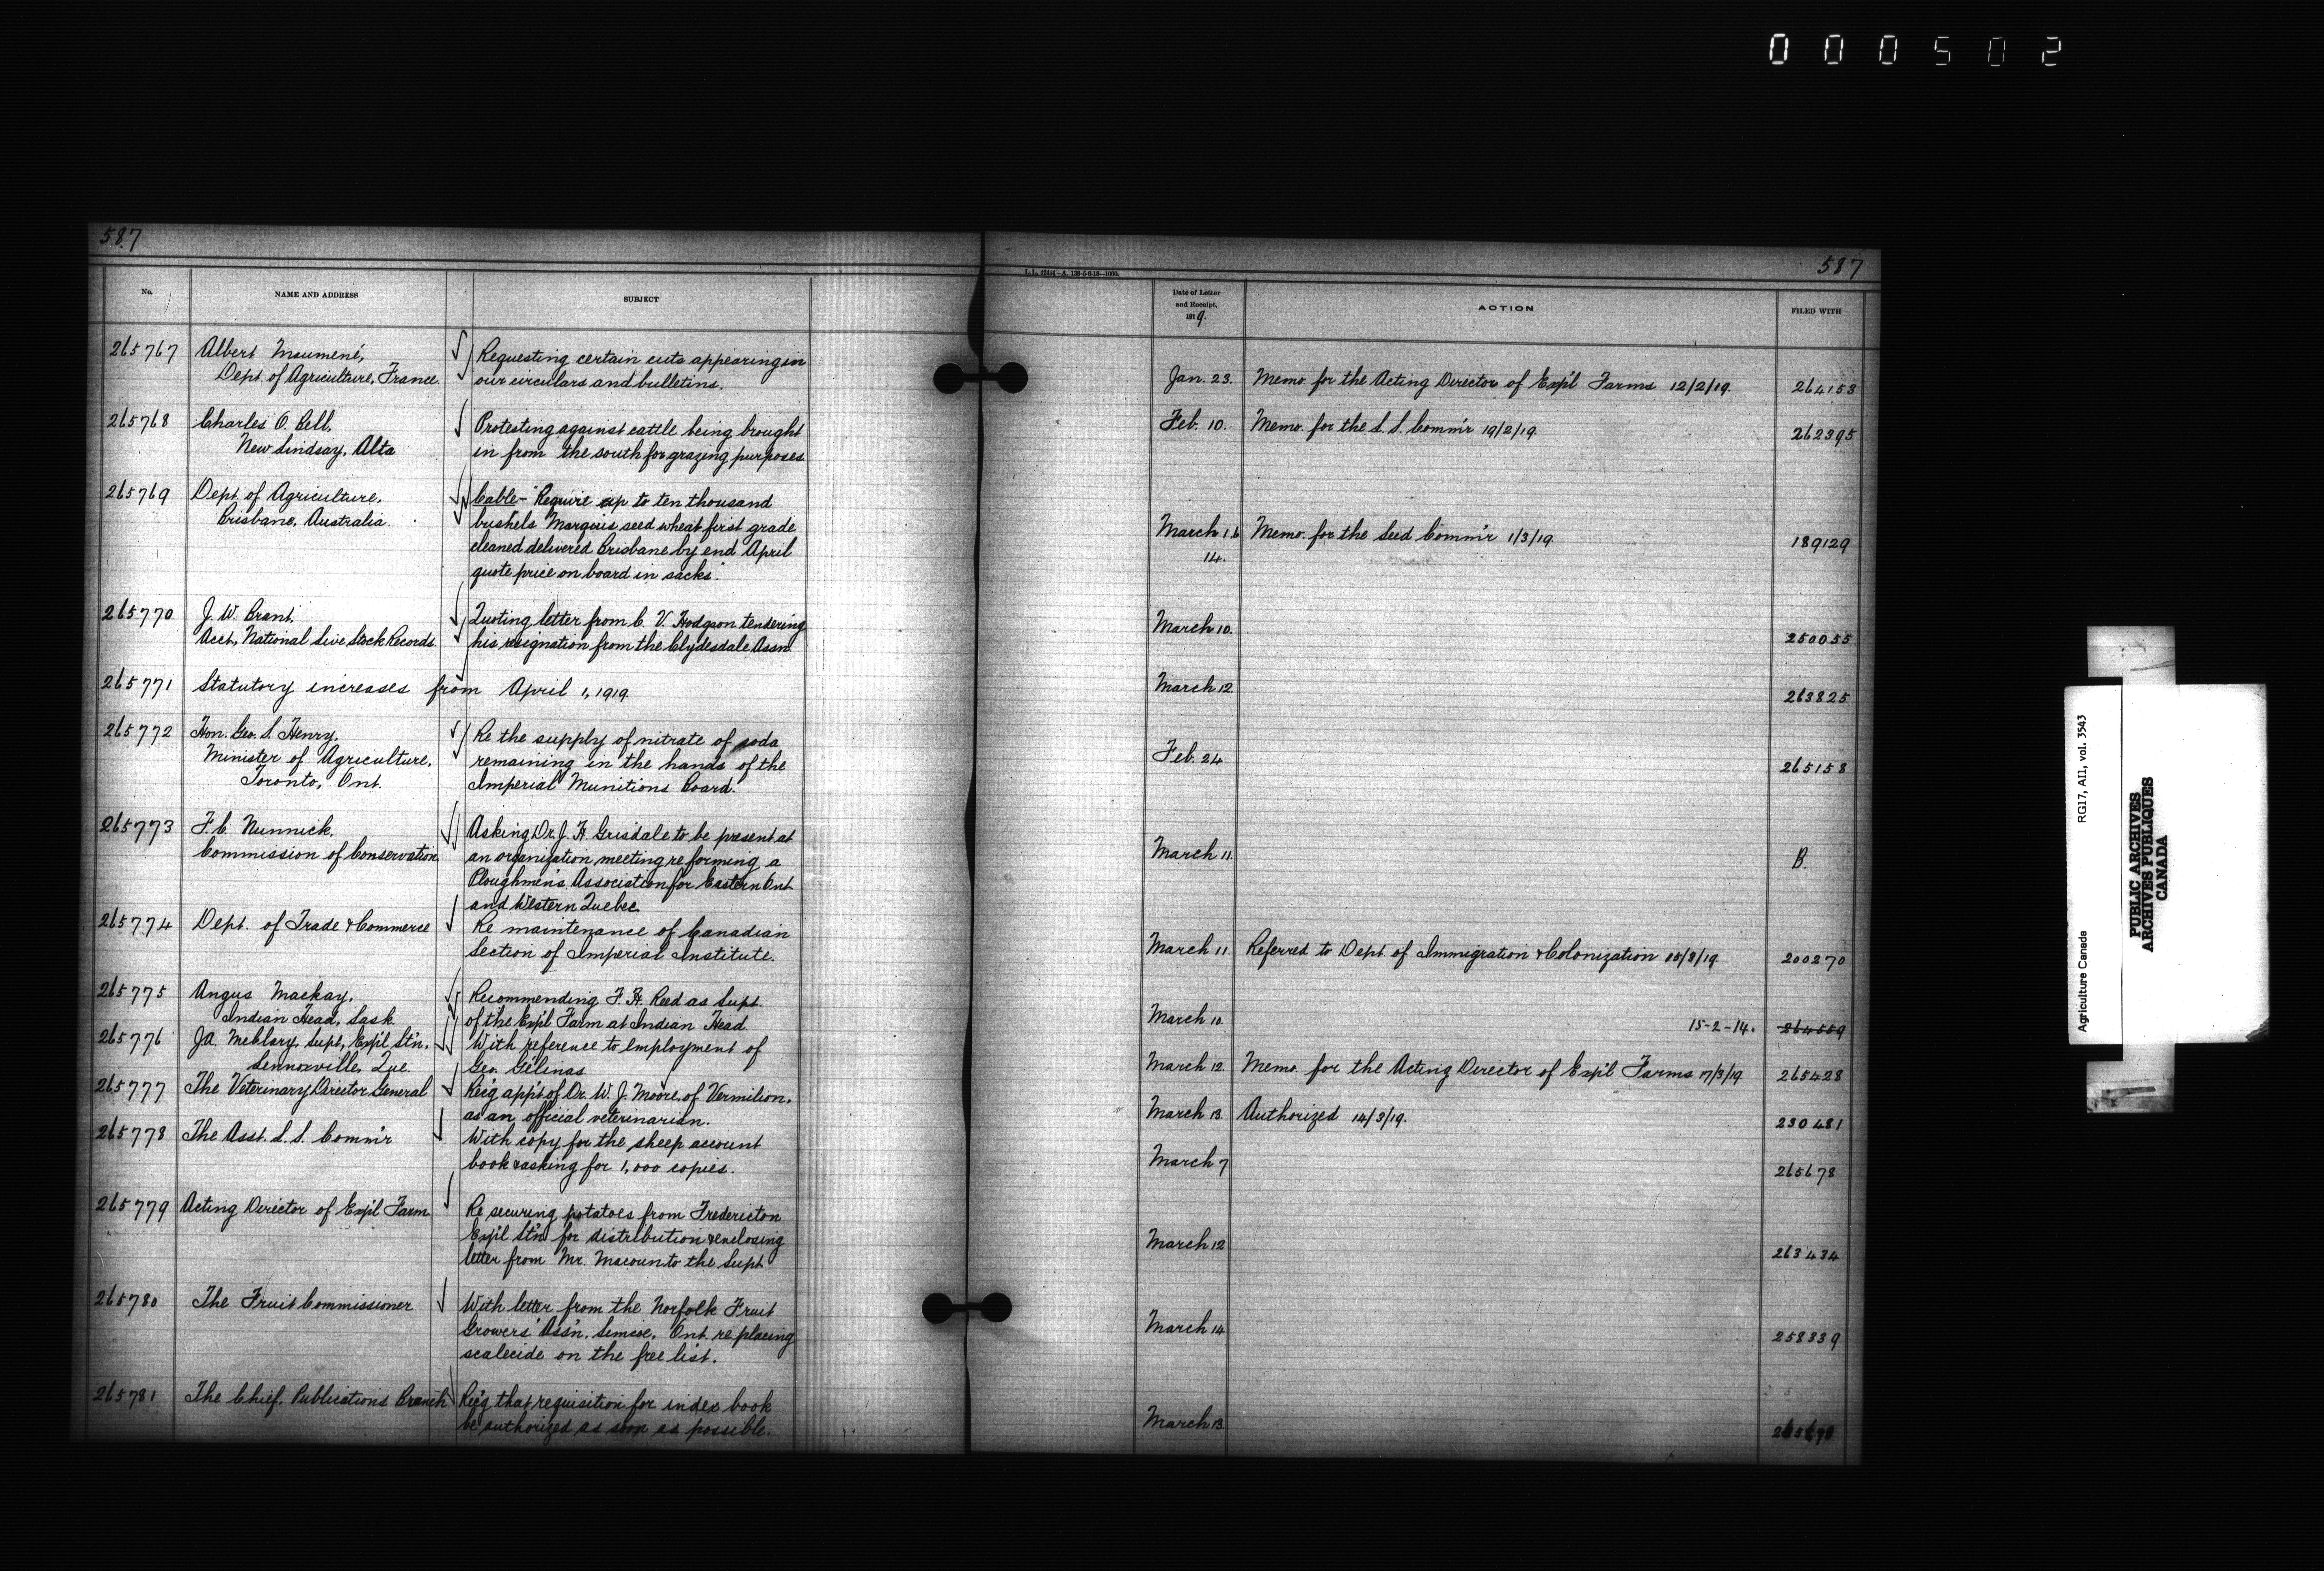 000502
587
587
L.L. 62414—A. 138-5-6-18—1000.
No.
NAME AND ADDRESS
SUBJECT
Date of Letter
and Receipt,
1919.
ACTION
FILED WITH
265767
Albert Maumené,
Dept. of Agriculture, France.
Requesting certain cuts appearing in
our circulars and bulletins.
Jan. 23.
Memo. for the Acting Director of Exp'l Farms 12/2/19.
264153
265768
Charles O. Bell,
New Lindsay, Alta
Protesting against cattle being brought
in from the south for grazing purposes.
Feb. 10.
Memo. for the L. S. Comm'r 19/2/19.
262395
265769
Dept. of Agriculture,
Brisbane, Australia.
Cable- "Require up to ten thousand
bushels Marquis seed wheat first grade
cleaned delivered Brisbane by end April
quote price on board in sacks."
March 1.6
14.
Memo. for the Seed Comm'r 1/3/19.
189129
265770
J. W. Brant,
Acct., National Live Stock Records
Quoting letter from C. V. Hodgson tendering
his resignation from the Clydesdale Assn.
March 10.
250055
265771
Statutory increases from April 1, 1919.
March 12
263825
265772
Hon. Geo. S. Henry,
Minister of Agriculture,
Toronto, Ont.
Re the supply of nitrate of soda
remaining in the hands of the
Imperial Munitions Board.
Feb. 24
265158
265773
F. C. Nunnick,
Commission of Conservation
Asking Dr. J. H. Grisdale to be present at
an organization meeting re forming a
Ploughmen's Association for Eastern Ont.
and Western Quebec
March 11.
B.
265774
Dept. of Trade & Commerce
Re maintenance of Canadian
Section of Imperial Institute.
March 11.
Referred to Dept. of Immigration & Colonization /3/19
200270
265775
Angus Mackay,
Indian Head, Sask.
Recommending F. H. Reed as Supt.
of the Exp'l Farm at Indian Head.
March 10.
15-2-14.
264559
265776
J.A. McClary, Supt., Exp'l St'n.
Lennoxville, Que.
With reference to employment of
Geo. Gélinas
March 12
Memo. for the Acting Director of Exp'l Farms 17/3/19
265428
265777
The Veterinary Director General
Rec'g app't of Dr. W. J. Moore, of Vermilion,
as an official veterinarian.
March 13
Authorized 14/3/19.
230481
265778
The Asst. L. S. Comm'r
With copy for the sheep account
book & asking for 1,000 copies.
March 7
265678
265779
Acting Director of Exp'l Farm
Re securing potatoes from Fredericton
Exp'l St'n for distribution & enclosing
letter from Mr. Macoun to the Supt.
March 12
263434
265780
The Fruit Commissioner
With letter from the Norfolk Fruit
Growers' Ass'n. Simcoe, Ont. re placing
scalecide on the free list.
March 14
258339
265781
The Chief, Publications Branch
Rec'g that requisition for index book
be authorized as soon as possible.
March 13.
Agriculture Canada
RG17, AI1, vol. 3543
PUBLIC ARCHIVES
ARCHIVES PUBLIQUES
CANADA